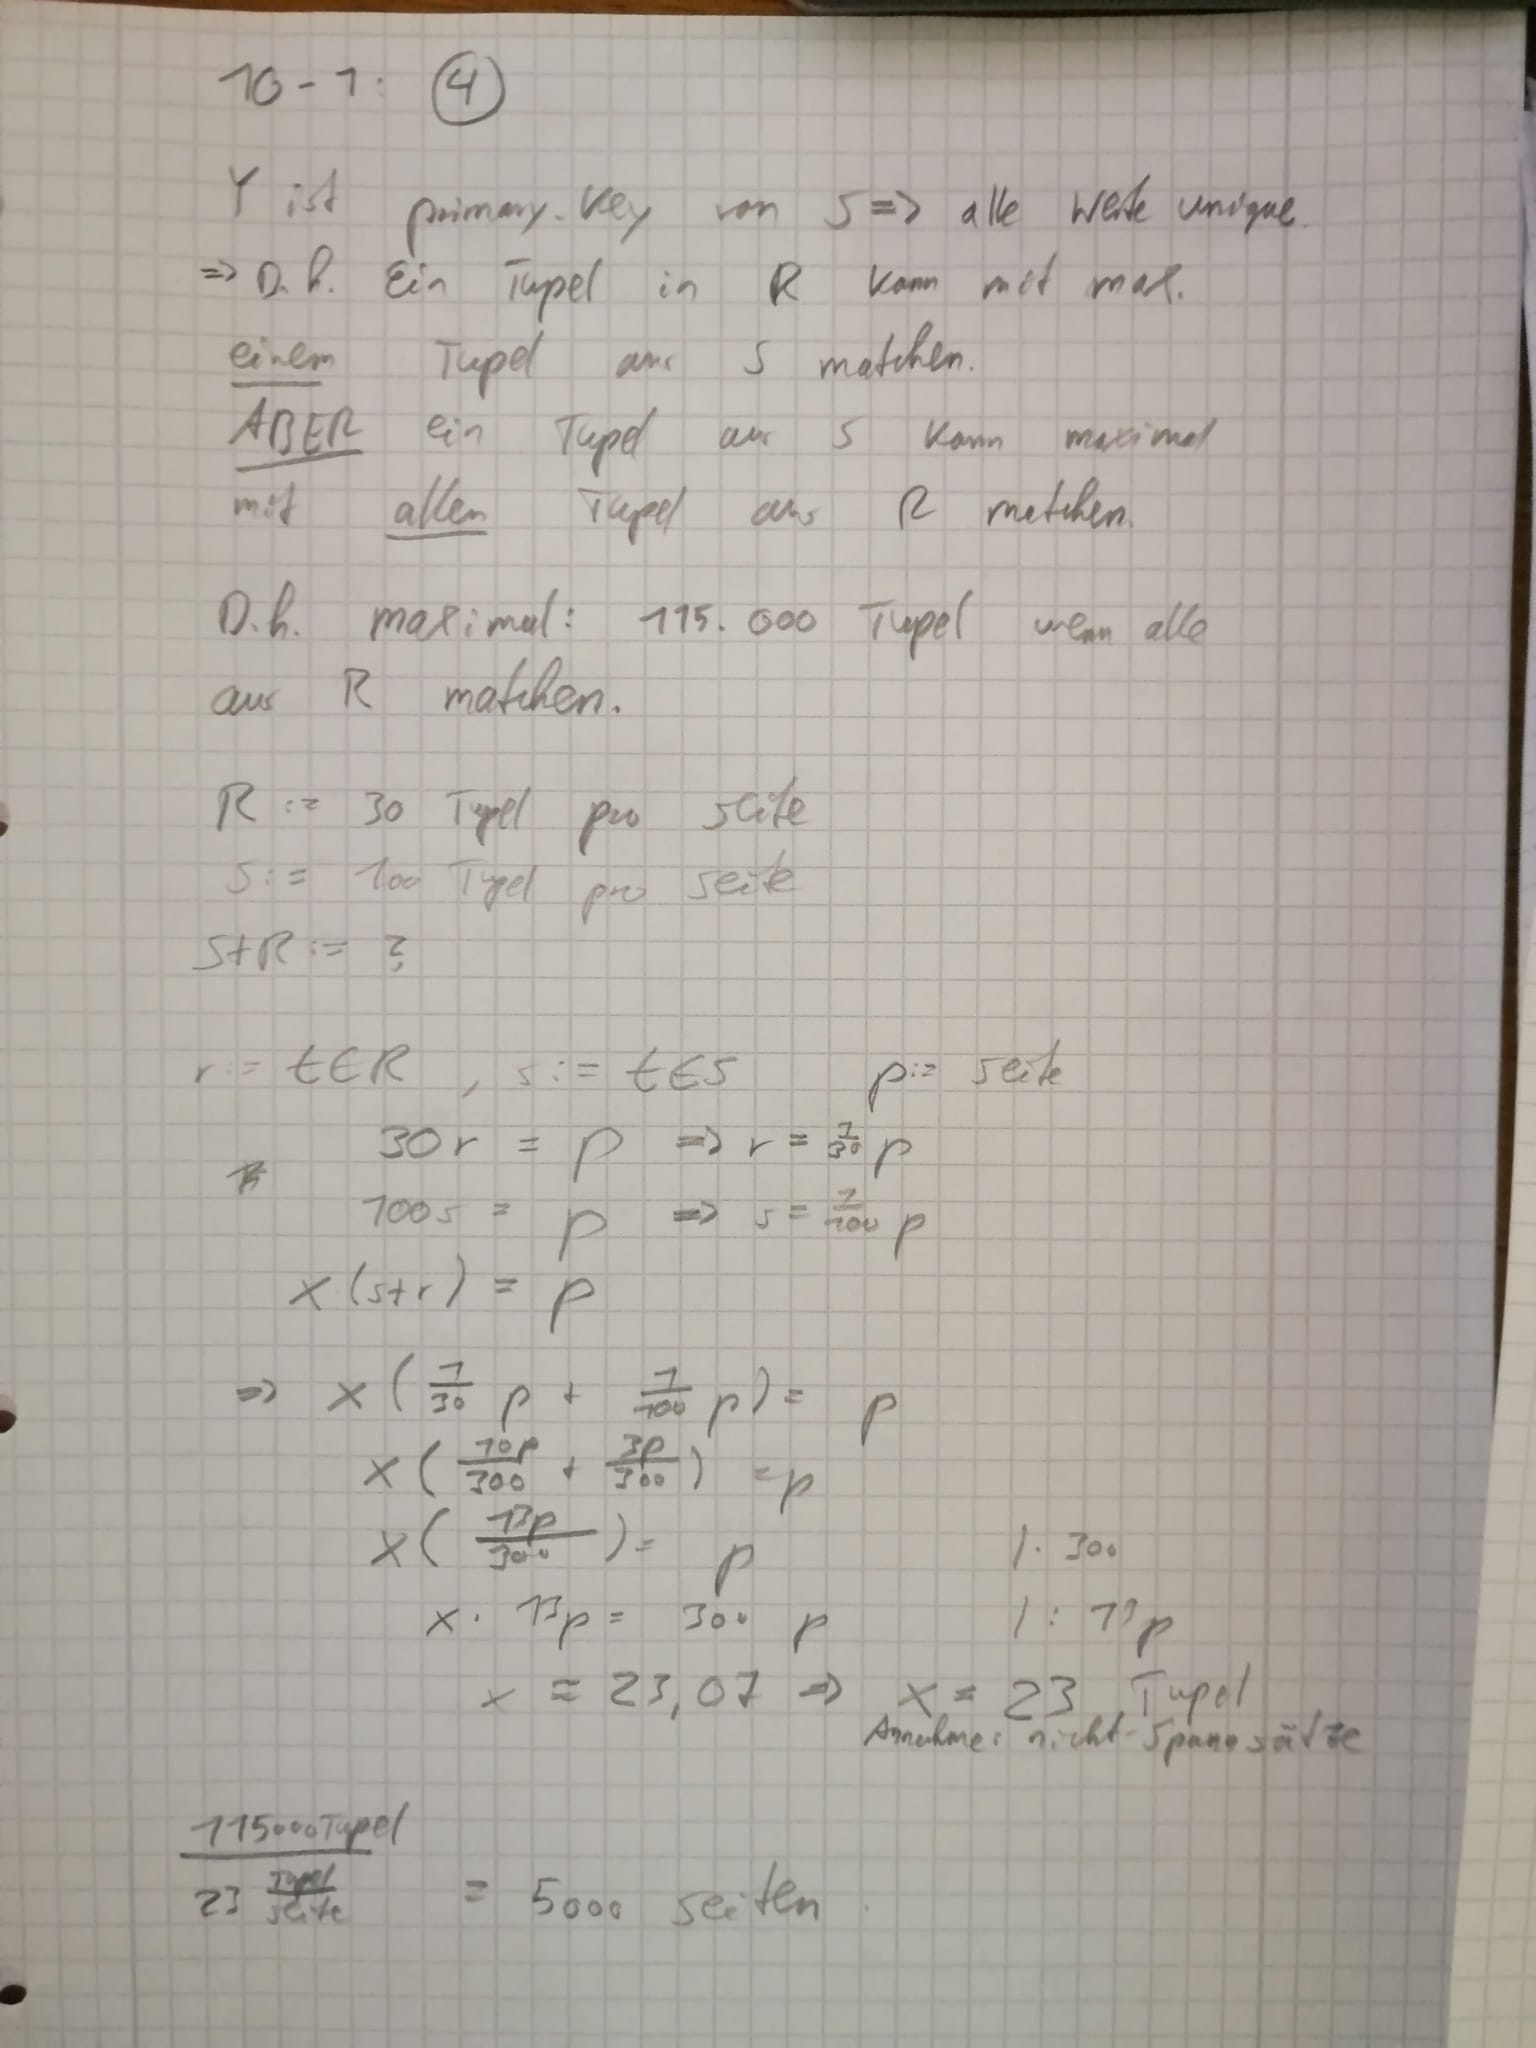 10-1: ④
Y ist primary-key von S => alle Werte unique.
=> D.h. Ein Tupel in R kann mit max.
einem Tupel aus S matchen.
ABER ein Tupel aus S kann maximal
mit allen Tupel aus R matchen.
D.h. maximal: 115.000 Tupel wenn alle
aus R matchen.
R := 30 Tupel pro Seite
S := 100 Tupel pro Seite
S+R := ?
r := t∈R , s := t∈S p := Seite
30r = p => r = 1/30 p
100s = p => s = 1/100 p
x (s+r) = p
=> x (1/30 p + 1/100 p) = p
x (10p/300 + 3p/300) = p
x (13p/300) = p |· 300
x · 13p = 300 p |: 13p
x ≈ 23,07 => x = 23 Tupel
Annahme: nicht-Spannsätze
115000 Tupel / 23 Tupel/Seite = 5000 Seiten.